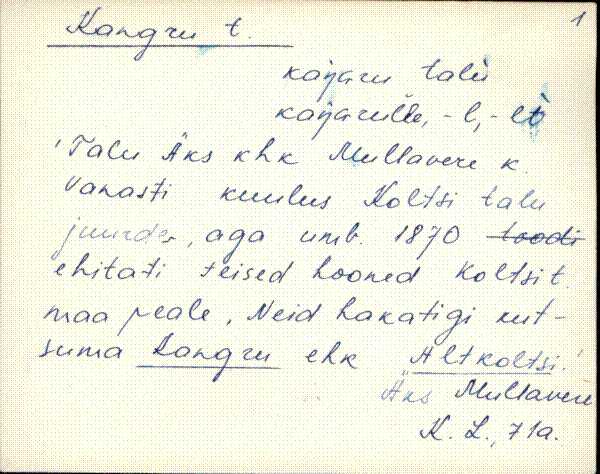 1
Kangru t.
kaŋgru talù
kaŋgrulle, -l, -lt
'Talu Äks khk Mullavere k.
Vanasti kuulus Koltsi talu
juurde, aga umb. 1870 toodi
ehitati teised hooned Koltsi t.
maa peale. Neid hakatigi kut-
suma Kangru ehk "Altkoltsi.'
Äks Mullavere
K. L., 71a.